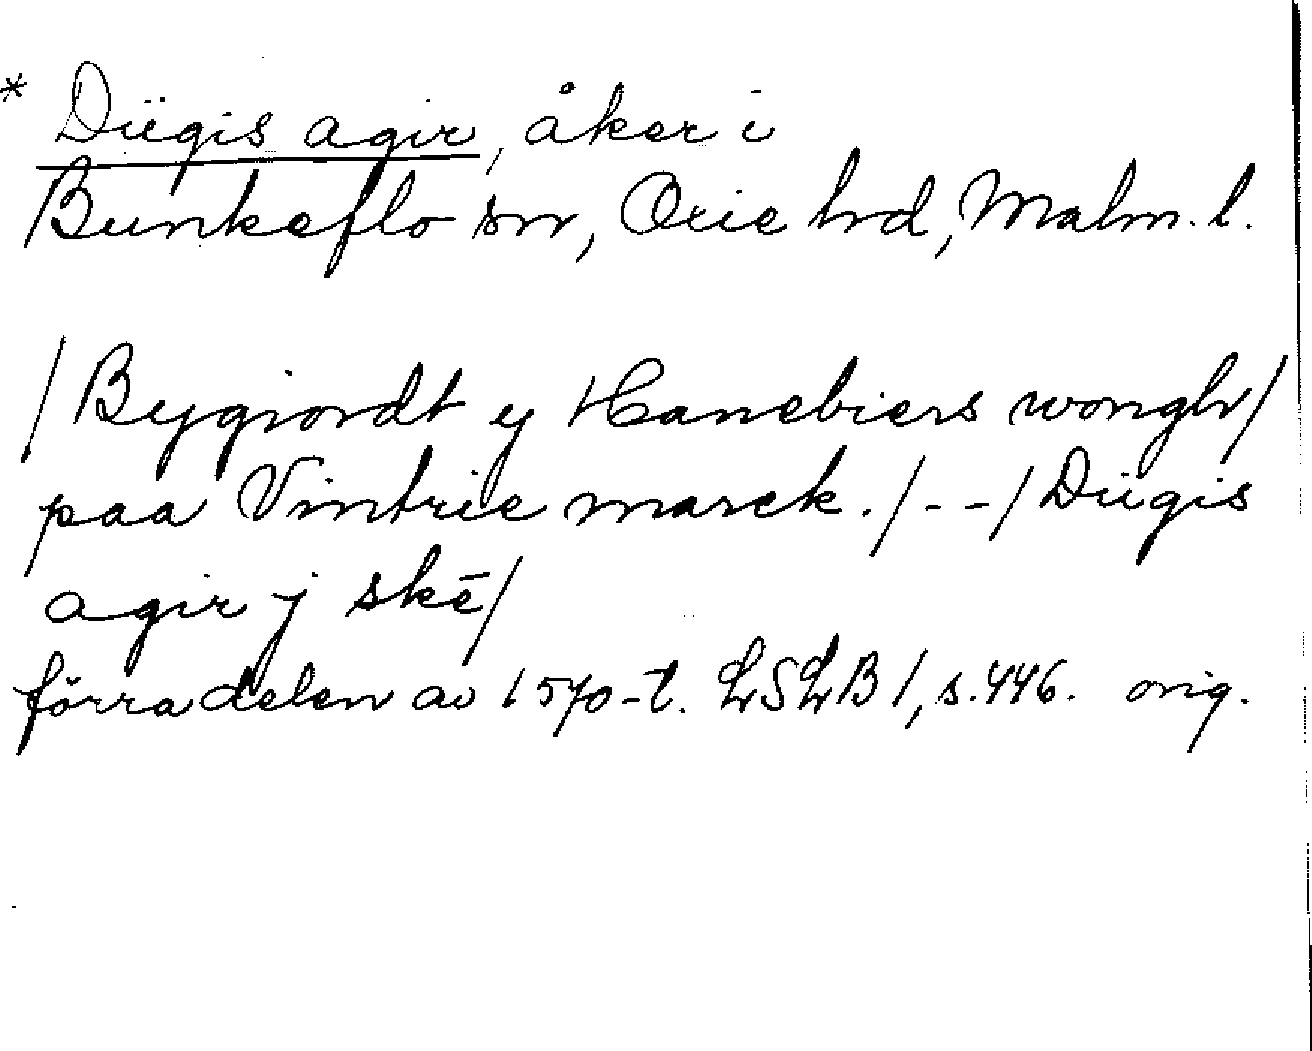 * Dügis agir, åker i
Bunkeflo sn, Oxie hrd, Malm. l.
/ Bygiordt y Hanebiers wongh /
paa Vintrie marck. / - - / Dügis
agir j skē /
förra delen av 1570-t. LSLB 1, s. 446. orig.